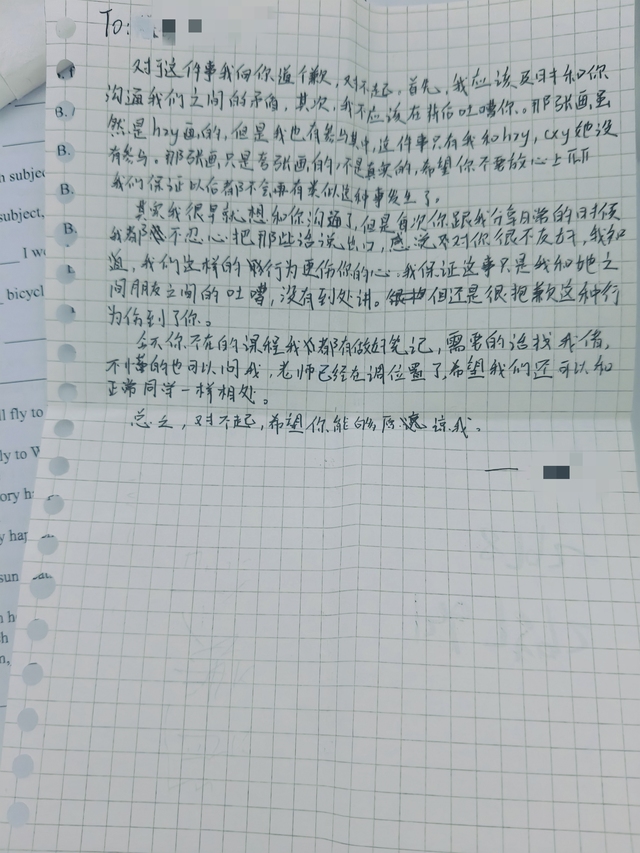 To:
对于这件事我向你道个歉，对不起。首先，我应该及时和你
沟通我们之间的矛盾，其次，我不应该在背后吐嘈你。那张画虽
然是hzy画的，但是我也有参与其中，这件事只有我和hzy，cxy她没
有参与。那张画只是夸张画的，不是真实的，希望你不要放心上
我们保证以后都不会再有类似这种事发生了。
其实我很早就想和你沟通了，但是每次你跟我分享日常的时候
我都不忍心把那些话说出口，感觉对你很不友好，我知
道，我们这样的行为更伤你的心，我保证这事只是我和她之
间朋友之间的吐嘈，没有到处讲。但还是很抱歉这种行
为伤到了你。
今天你不在的课程我都有做好笔记，需要的话找我借，
不懂的也可以问我，老师已经在调位置了，希望我们还可以和
正常同学一样相处。
总之，对不起，希望你能够原谅我。
——
B.
B.
B.
B.
n subject
subject,
I w
bicycl
ll fly to
ly to W
ory h
y hap
sun
n h
h
n,